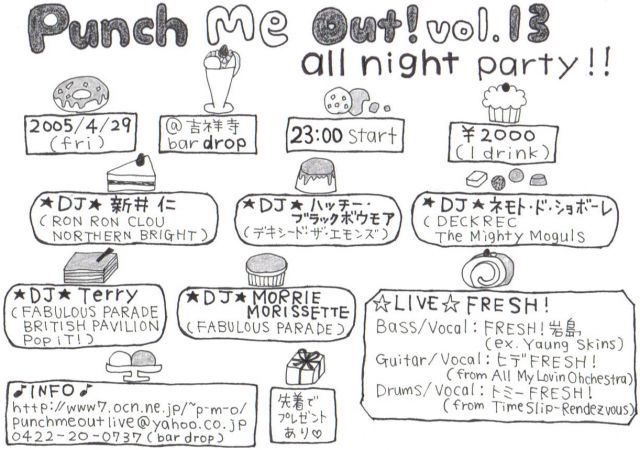 Punch Me Out! vol.13
all night party!!
2005/4/29
(fri)
@吉祥寺
bar drop
23:00 start
¥2000
(1 drink)
★DJ★ 新井 仁
(RON RON CLOU
NORTHERN BRIGHT)
★DJ★ ハッチー・
ブラックボウモア
(デキシード・ザ・エモンズ)
★DJ★ ネモト・ド・ショボーレ
(DECKREC
The Mighty Moguls
★DJ★ Terry
(FABULOUS PARADE
BRITISH PAVILION
Pop iT!)
★DJ★ MORRIE
MORISSETTE
(FABULOUS PARADE)
☆LIVE☆ FRESH!
Bass/Vocal: FRESH!岩島
(ex. Yaung Skins)
Guitar/Vocal: ヒデFRESH!
(from All My Lovin Ohchestra)
Drums/Vocal: トミーFRESH!
(from TimeSlip-Rendezvous)
♪INFO♪
http://www7.ocn.ne.jp/~p-m-o/
punchmeoutlive@yahoo.co.jp
0422-20-0737 (bar drop)
先着で
プレゼント
あり♡